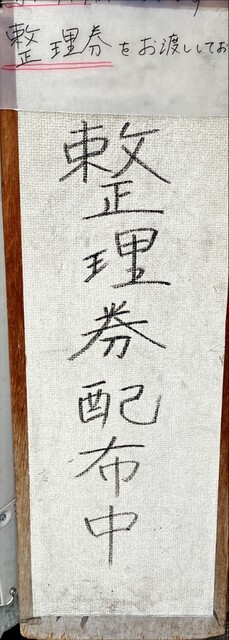 整理券をお渡ししてお
整理券配布中